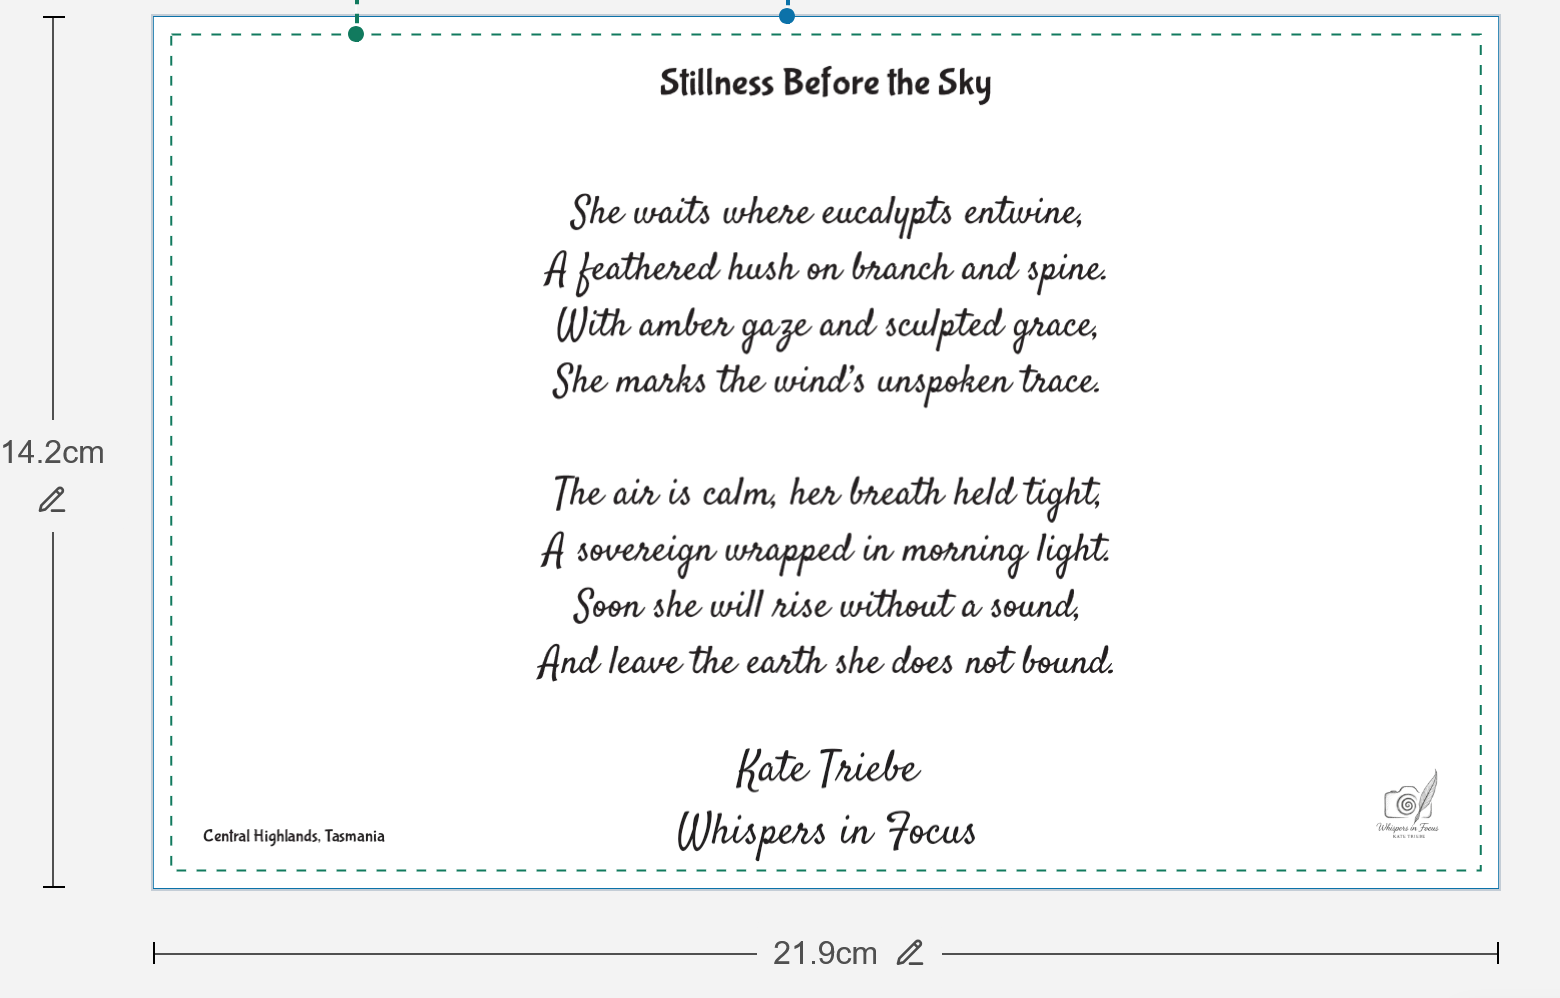 Stillness Before the Sky
She waits where eucalypts entwine,
A feathered hush on branch and spine.
With amber gaze and sculpted grace,
She marks the wind’s unspoken trace.
The air is calm, her breath held tight,
A sovereign wrapped in morning light.
Soon she will rise without a sound,
And leave the earth she does not bound.
Kate Triebe
Whispers in Focus
Central Highlands, Tasmania
Whispers in Focus
KATE TRIEBE
14.2cm
21.9cm